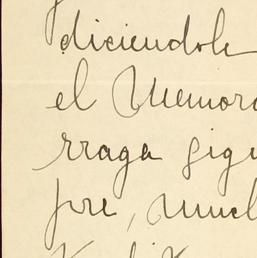 diciendole
el Memora
rraga sigu
pre, much